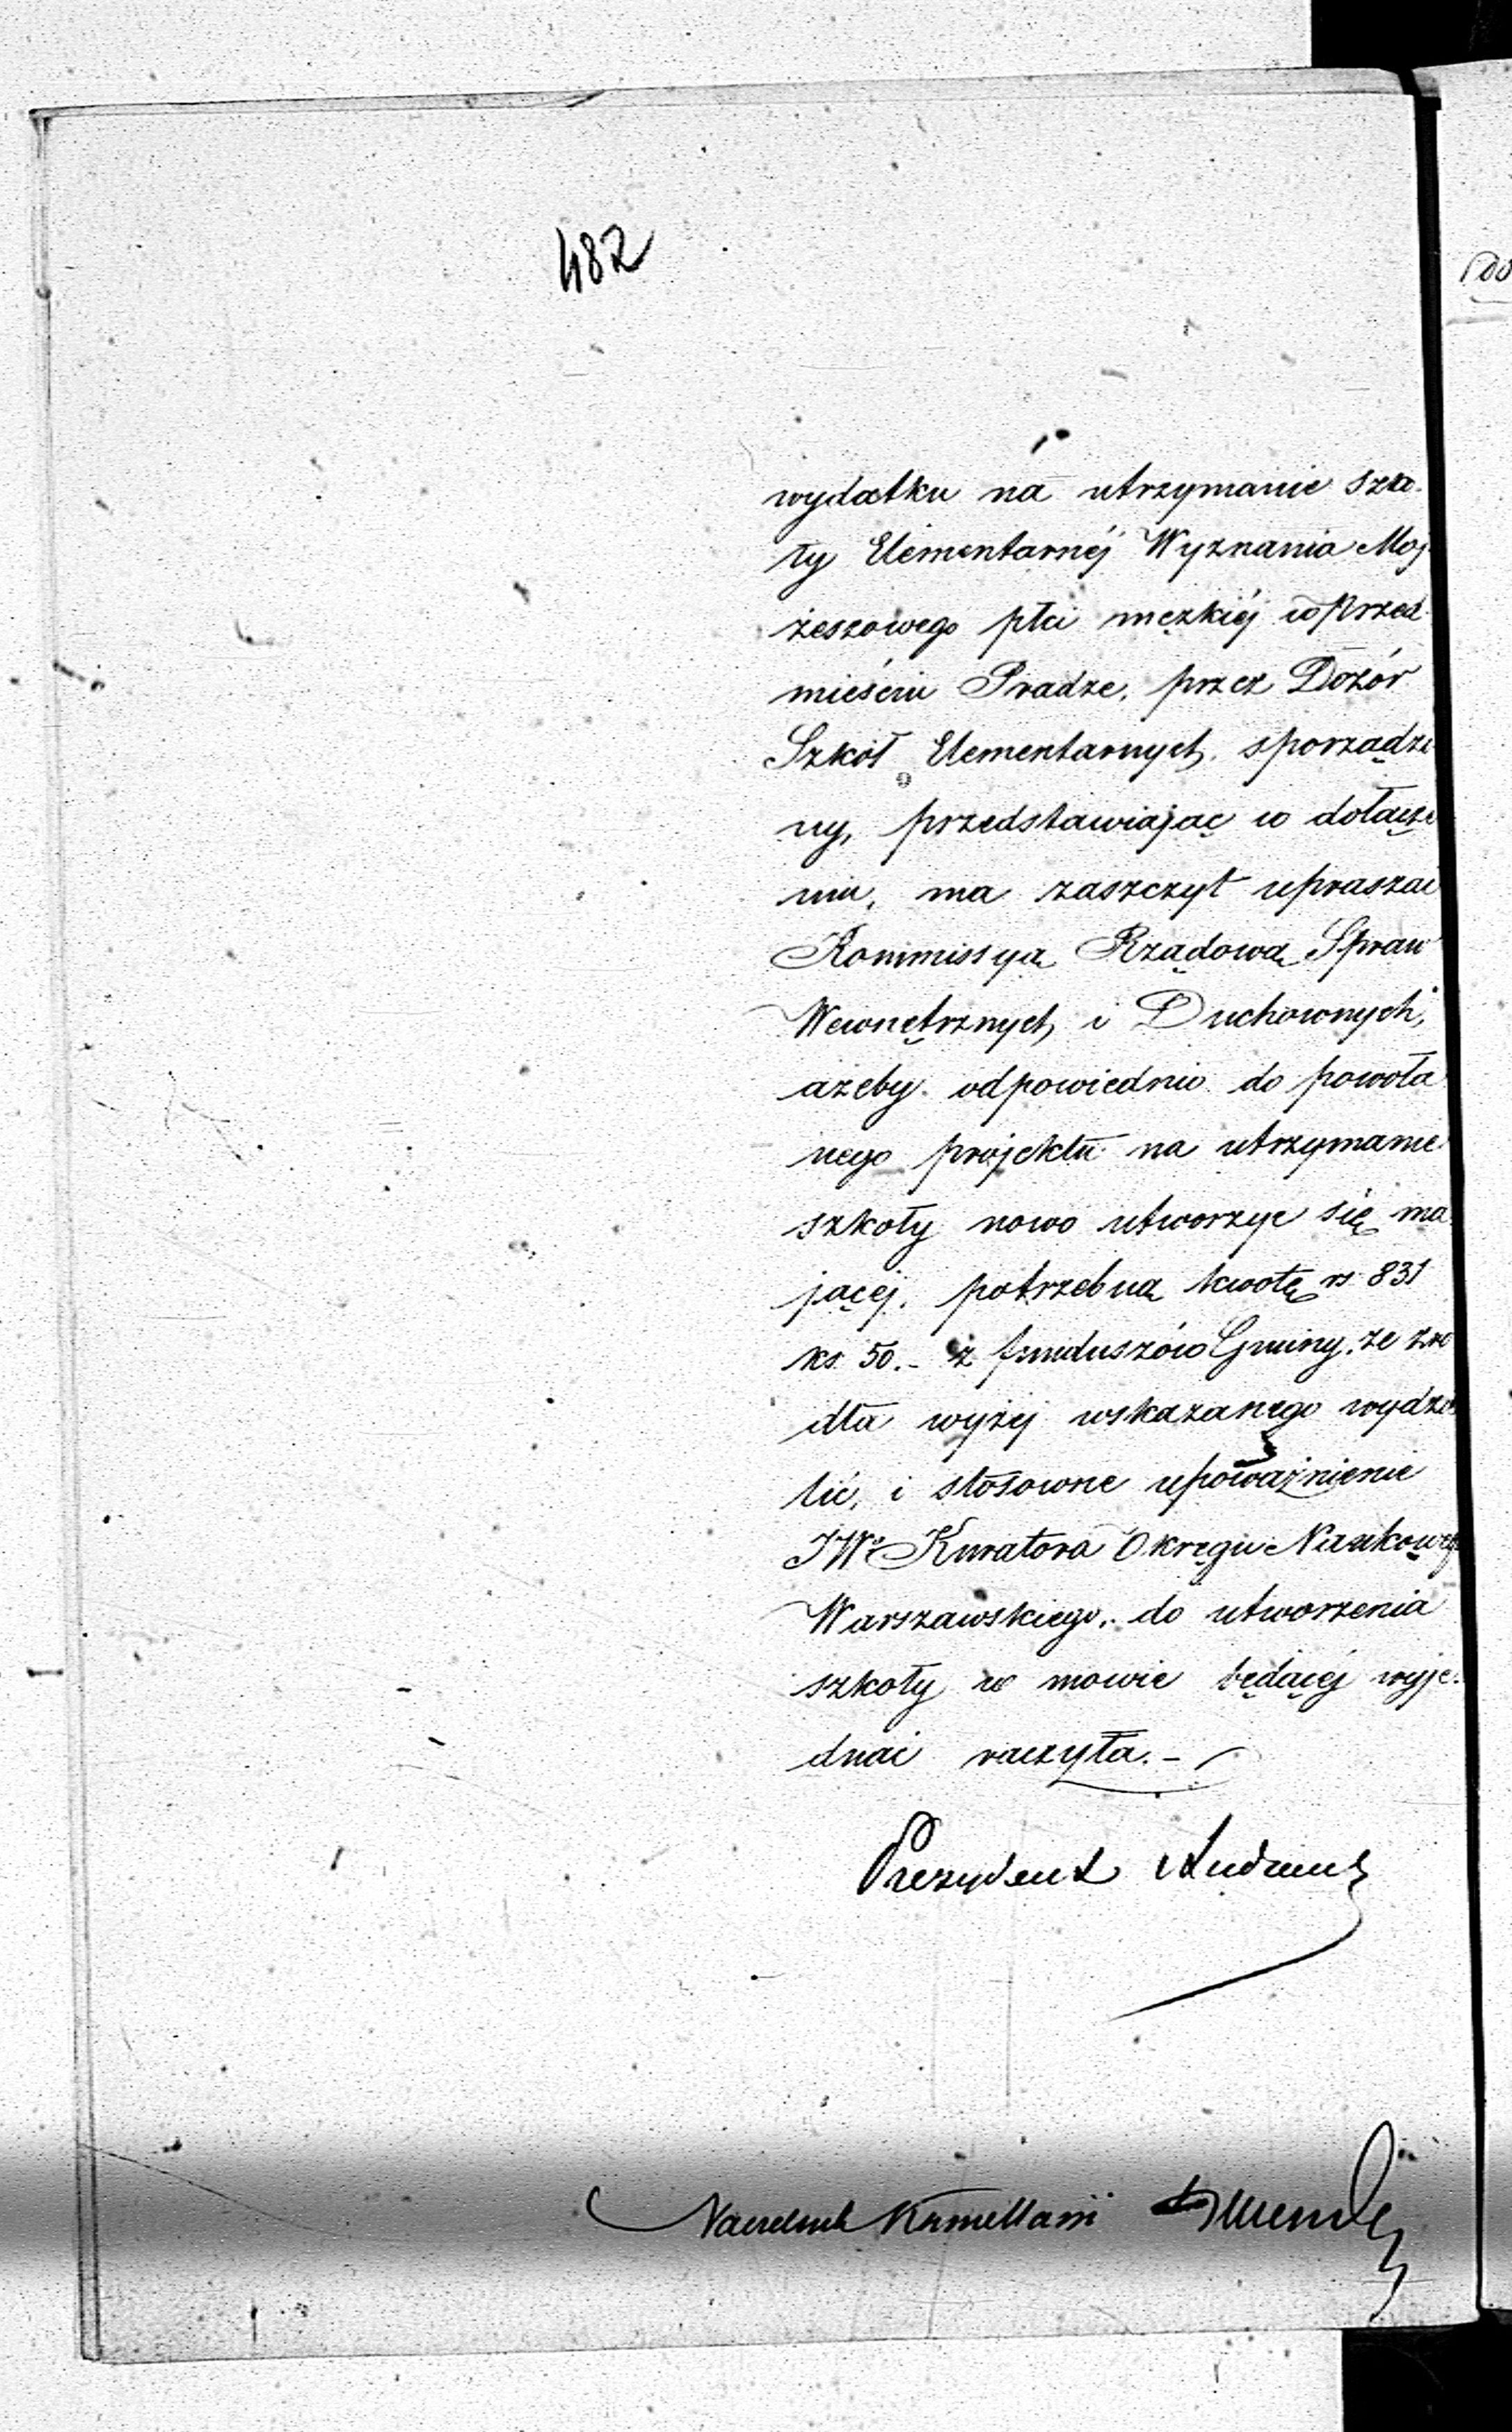 482
wydatku na utrzymanie szko-
ły Elementarnéj Wyznania Moj-
żeszowego płci męzkiéj w Przed-
mieściu Pradze, przez Dozór
Szkół Elementarnych sporządzo
ny, przedstawiając w dołącze
niu, ma zaszczyt upraszać
Kommissyą Rządową Spraw
Wewnętrznych i Duchownych,
ażeby odpowiednio do powoła
nego projektu na utrzymanie
szkoły nowo utworzyć się ma
jącéj, potrzebną kwotę rs 831
ks 50.- z funduszów Gminy, ze źró
dła wyżej wskazanego wydzie
lić, i stosowne upoważnienie
JWo Kuratora Okręgu Naukowego
Warszawskiego, do utworzenia
szkoły w mowie będącéj wyje-
dnać raczyła.-
Prezydent Andrault
Naczelnik Kancellarii